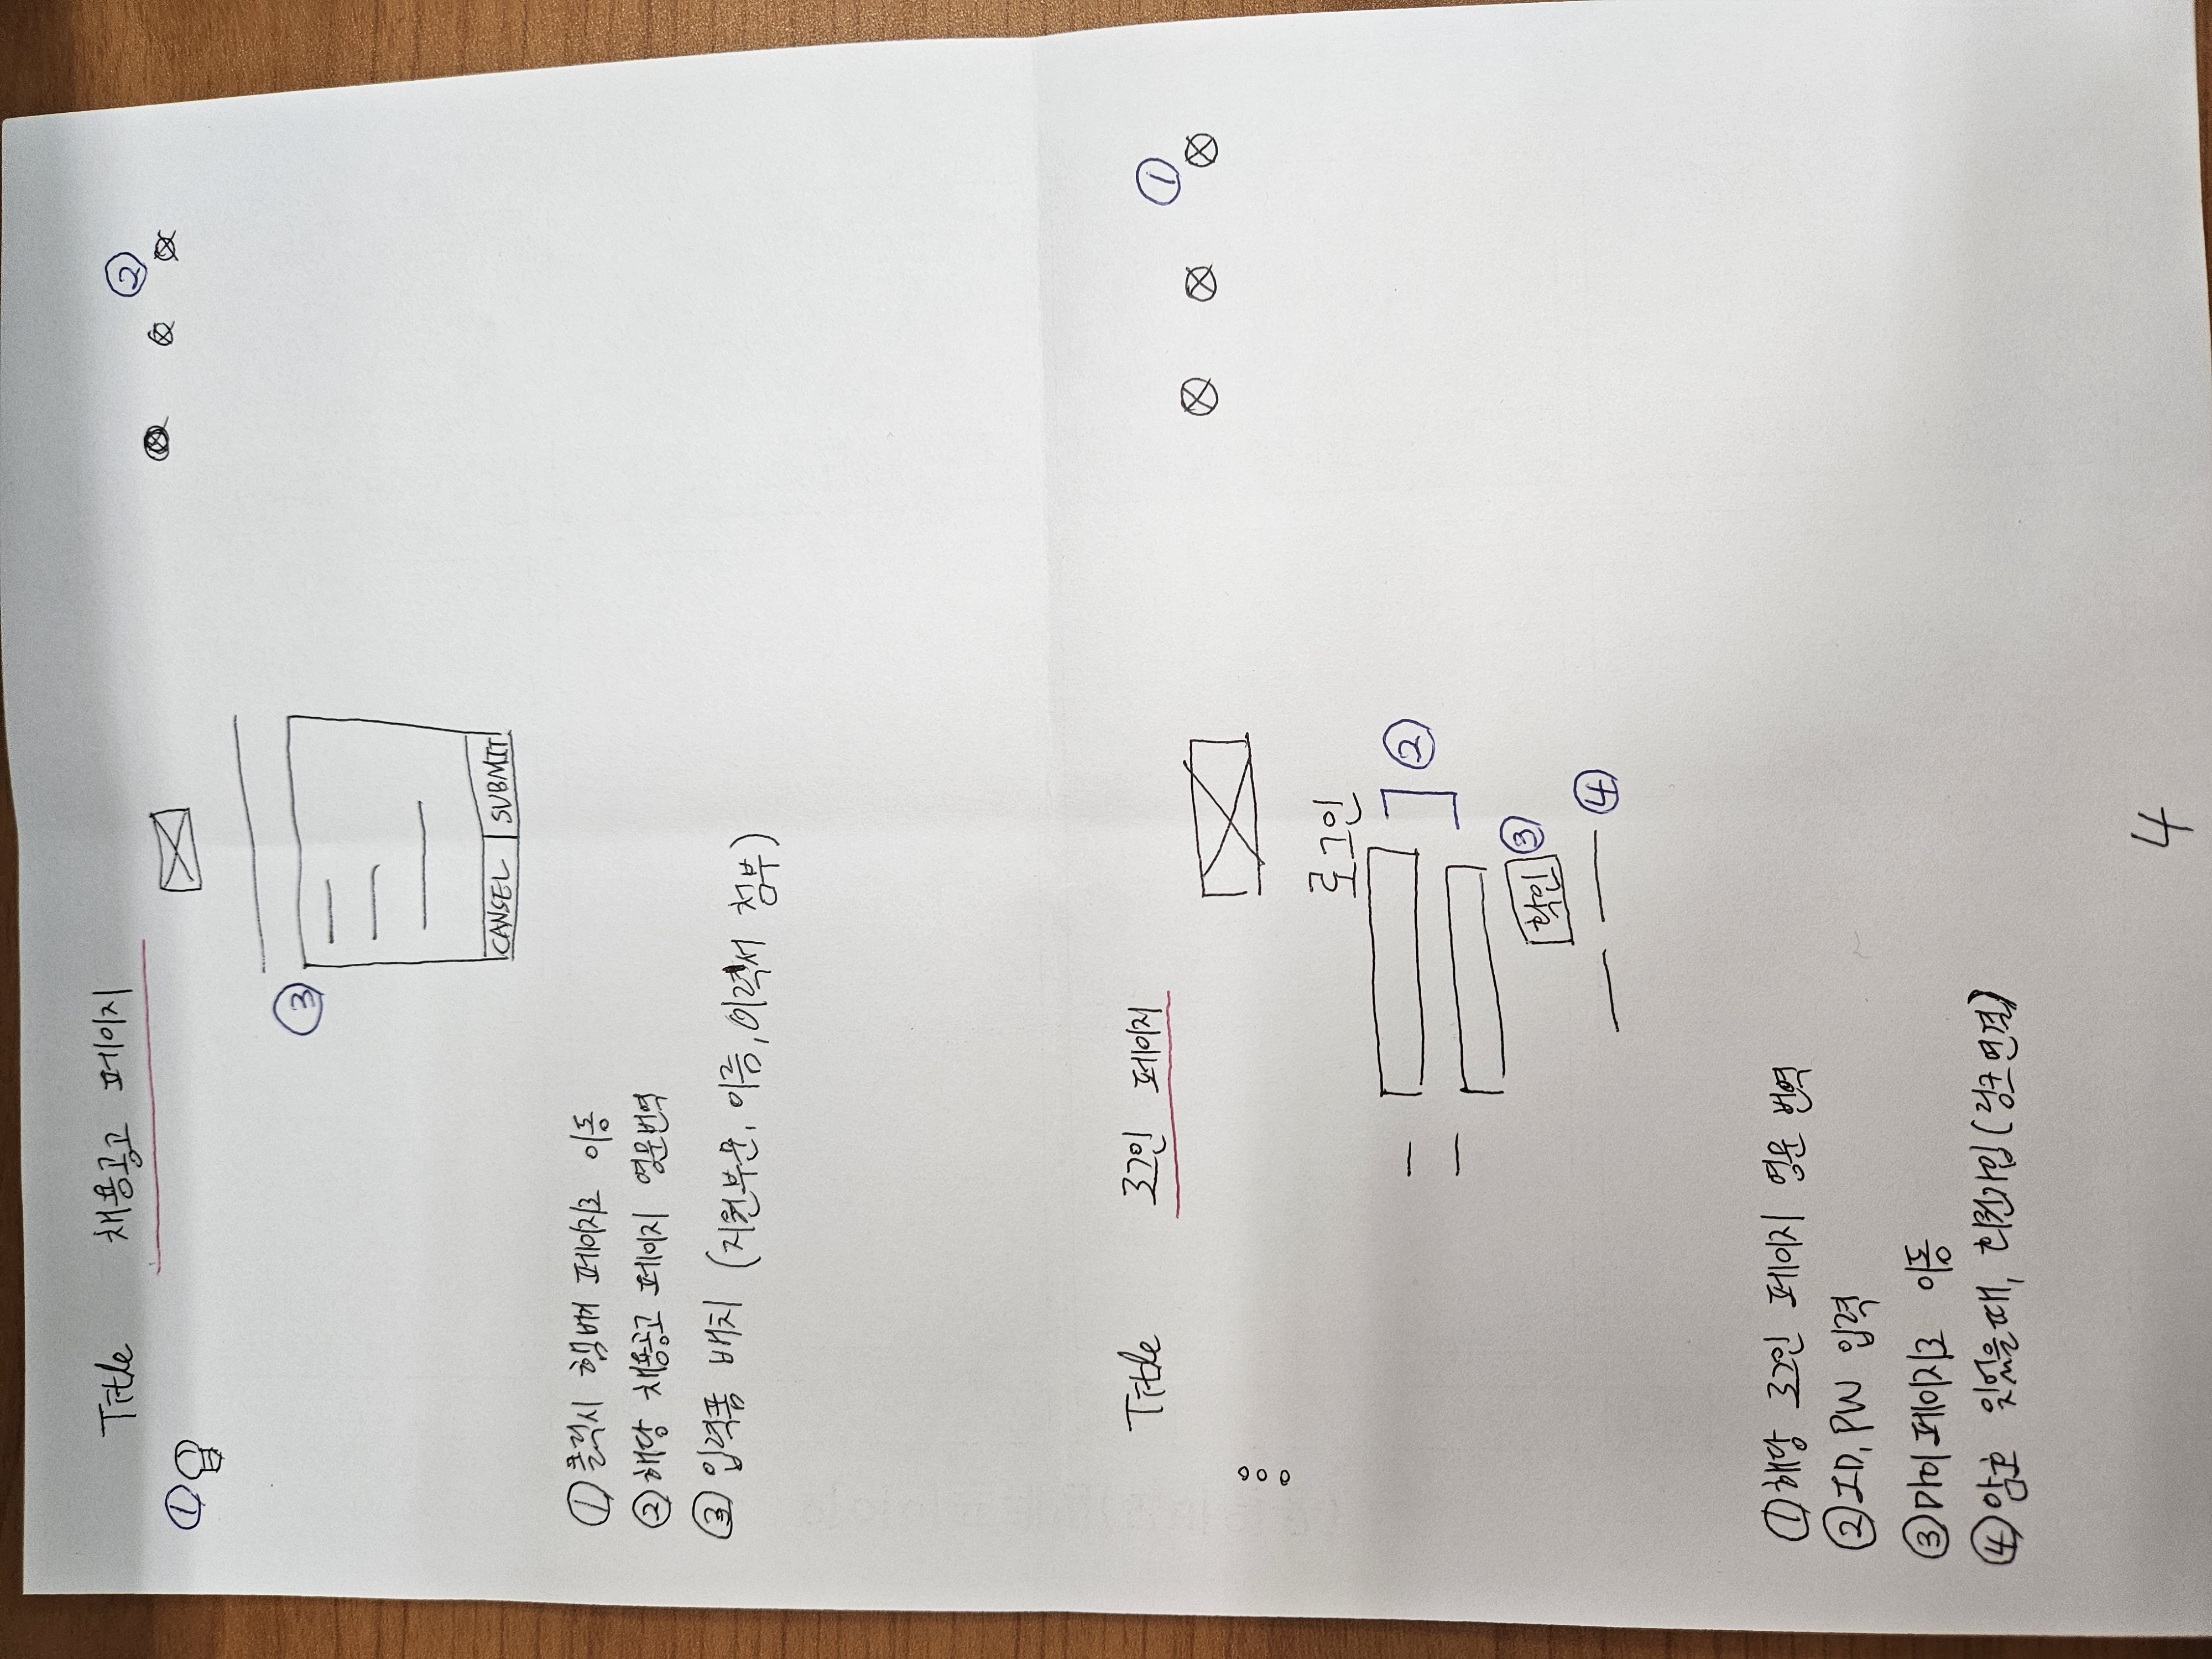 Title 채용공고 페이지
②
①
③
CANSEL SUBMIT
① 클릭시 햄버거 페이지로 이동
② 해당 채용공고 페이지 영문번역
③ 입력폼 배치 (지원부문, 이름, 이력서 첨부)
Title 로그인 페이지
①
로그인
②
확인 ③
④
① 해당 로그인 페이지 영문 번역
② ID, PW 입력
③ 마이페이지로 이동
④ 암호 잊었을때, 회원가입 (링크연결)
4